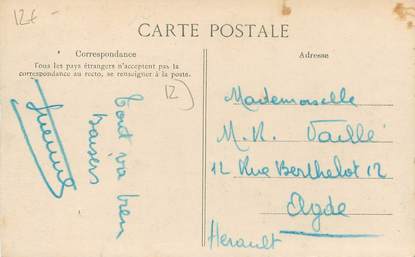 12€
CARTE POSTALE
Correspondance
Tous les pays étrangers n'acceptent pas la
correspondance au recto, se renseigner à la poste.
12
Tout va bien
baisers
Adresse
Mademoiselle
M. R. Vaillé
12 Rue Berthelot 12
Agde
Herault